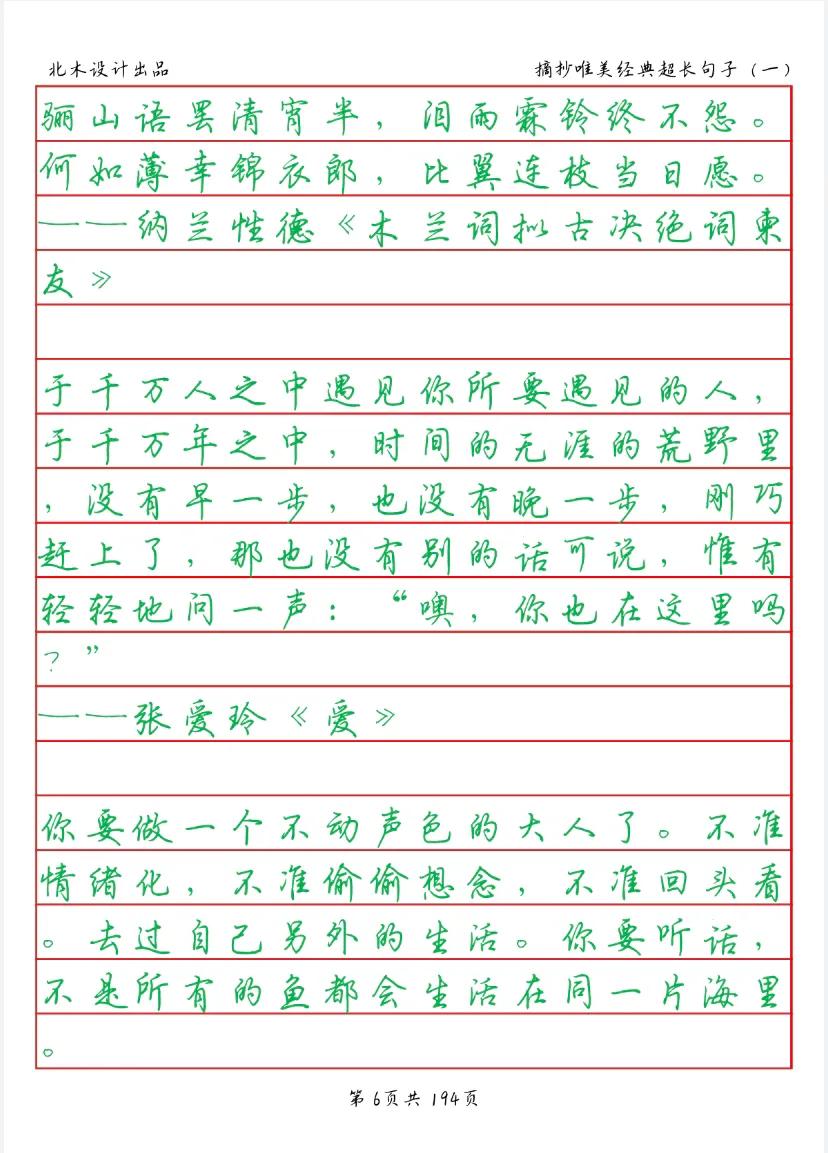 北木设计出品
摘抄唯美经典超长句子（一）
骊山语罢清宵半，泪雨霖铃终不怨。
何如薄幸锦衣郎，比翼连枝当日愿。
——纳兰性德《木兰词拟古决绝词柬
友》
于千万人之中遇见你所要遇见的人，
于千万年之中，时间的无涯的荒野里
，没有早一步，也没有晚一步，刚巧
赶上了，那也没有别的话可说，惟有
轻轻地问一声：“噢，你也在这里吗
？”
——张爱玲《爱》
你要做一个不动声色的大人了。不准
情绪化，不准偷偷想念，不准回头看
。去过自己另外的生活。你要听话，
不是所有的鱼都会生活在同一片海里
。
第6页共194页